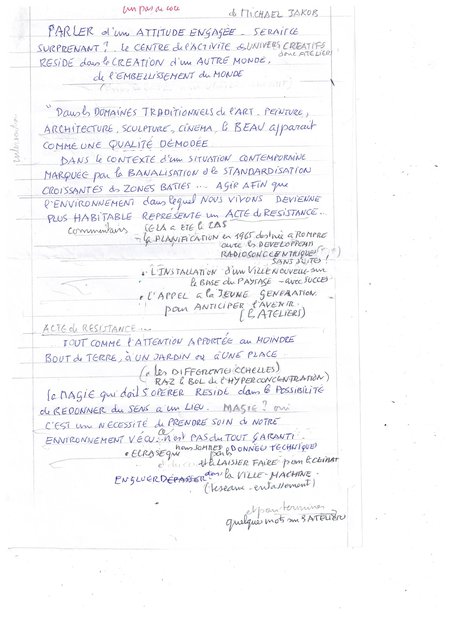 un pas de côté
de MICHAEL JAKOB
PARLER d'une ATTITUDE ENGAGÉE SERAIT CE
SURPRENANT? le CENTRE de l'ACTIVITÉ d'UNIVERS CREATIFS
dans ATELIERS
RESIDE dans le CREATION d'UN AUTRE MONDE.
de l'EMBELLISSEMENT du MONDE
"Dans les DOMAINES TRADITIONNELS de l'ART. PEINTURE,
ARCHITECTURE, SCULPTURE, CINEMA, le BEAU apparait
COMME UNE QUALITÉ DÉMODÉE
DANS le CONTEXTE d'un SITUATION CONTEMPORAINE
MARQUÉE par la BANALISATION et le STANDARDISATION
CROISSANTES des ZONES BATIES... AGIR AFIN que
l'ENVIRONNEMENT dans lequel NOUS VIVONS DEVIENNE
PLUS HABITABLE REPRESENTE un ACTE de RESISTANCE..
commentaires CELA a ETÉ le CAS
- la PLANIFICATION en 1965 destinée a ROMPRE
avec les DEVELOPPEMENTS
RADIOCONCENTRIQUES
SANS SUITES!
• L'INSTALLATION d'UN VILLE NOUVELLE sur
le BASE du PAYSAGE - avec SUCCES
• l'APPEL a la JEUNE GENERATION
pour ANTICIPER l'AVENIR.
(les ATELIERS)
ACTE de RESISTANCE...
TOUT COMME l'ATTENTION APPORTÉE au MOINDRE
BOUT de TERRE, à UN JARDIN ou à UNE PLACE
(les DIFFERENTES ECHELLES)
RAZ le BOL de l'HYPERCONCENTRATION)
la MAGIE qui doit S'OPERER RESIDE dans le POSSIBILITÉ
de REDONNER du SENS a un LIEU. MAGIE? oui
C'EST un NECESSITÉ de PRENDRE SOIN de NOTRE
ENVIRONNEMENT VECU. ce n'est PAS du TOUT GARANTI.
• ECRASÉ que nous SOMMES par les DONNÉES TECHNIQUES
et le LAISSER FAIRE pour le CLIMAT
ENGLUER DEPASSER dans la VILLE-MACHINE.
(reseaux - entassement)
et pour terminer
quelques mots sur S ATELIERS